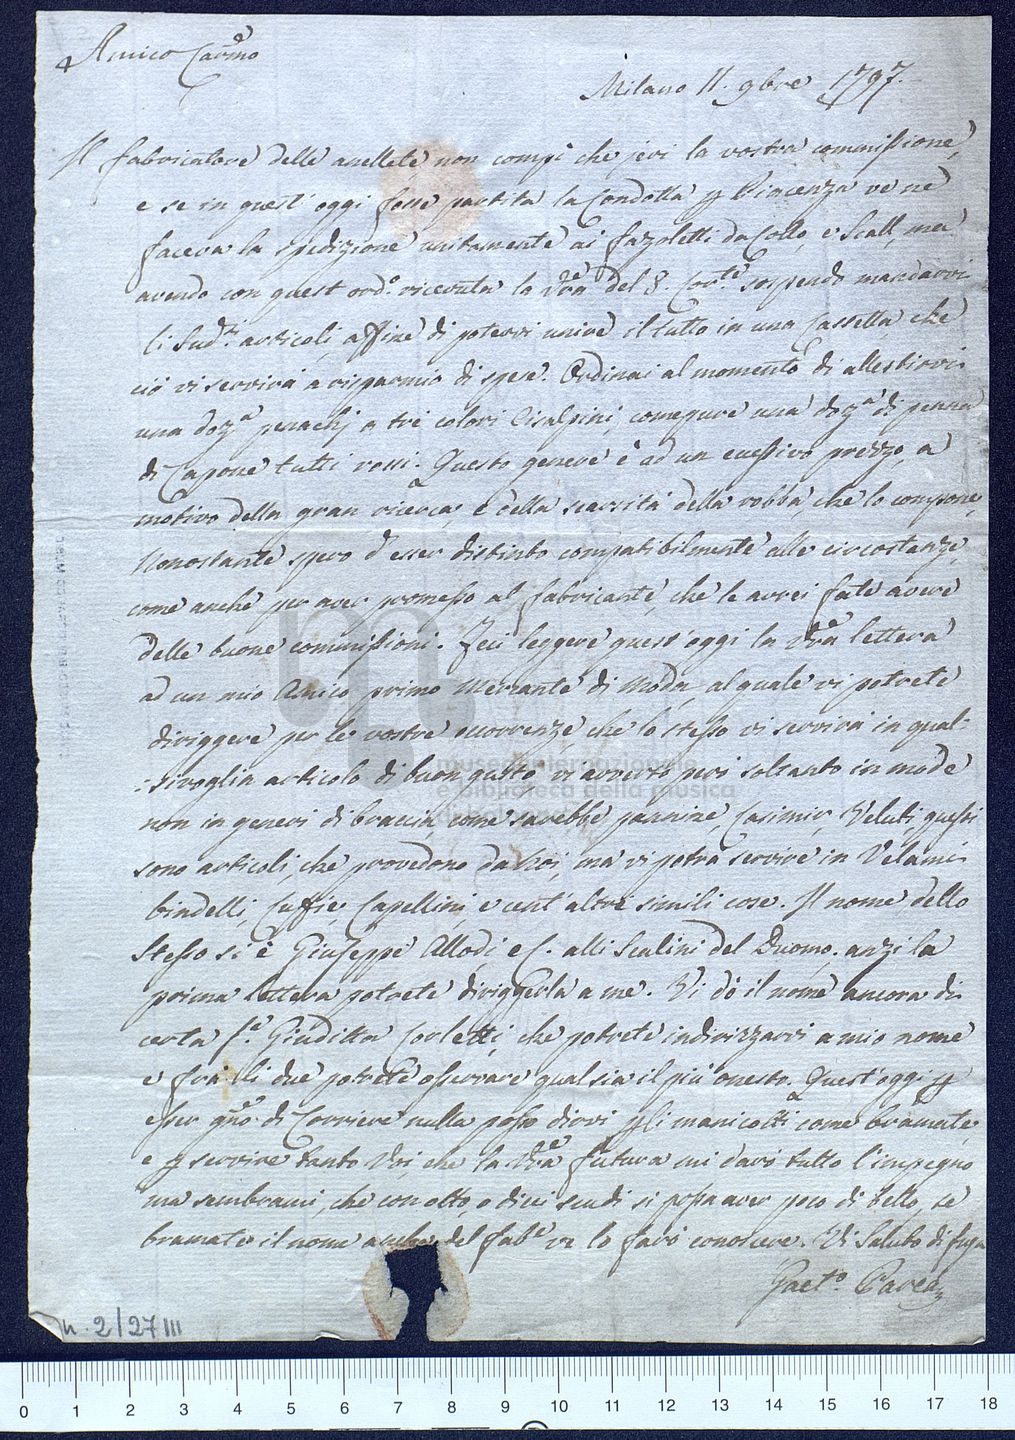 Amico Carmo
Milano 11. 9bre 1797.
Il fabricatore delle anellete non compì che jeri la vostra commissione,
e se in quest'oggi fosse partita la Condotta p Piacenza ve ne
faceva la spedizione unitamente ai fazoletti da Collo, e Scall, ma
avendo con quest'ordo. ricevuta la Vra del 8. Corte. sospendo mandarvi
li Sudti. articoli, affine di potervi unire il tutto in una Cassetta, che
ciò vi servirà a risparmio di spese. Ordinai al momento di allestirvi
una doza penachj a tre colori Cisalpini, comepure una doza di penne
di Capone tutti rossi. Questo genere è ad un ecessivo prezzo, a
motivo della gran ricerca, e della scarsità della robba, che lo compone,
Nonostante spero d'esser distinto compatibilmente alle circostanze,
come anche per aver promesso al fabricante, che le avrei fate avere
delle buone commissioni. Feci leggere quest'oggi la Vra lettera
ad un mio Amico primo Mercante di Moda, al quale vi potrete
diriggere per le vostre occorrenze, che lo stesso vi servirà in qual-
-sivoglia articolo di buon gusto vi avverto però soltanto in mode
non in generi di braccia, come sarebbe pannine, Casimir, Veluti, questi
sono articoli, che provedono da Noi, ma vi potrà servire in Velami
bindelli, Cuffie, Capellini, e cent'altre simili cose. Il nome dello
Stesso si è Giuseppe Allodi e C. alli Scalini del Duomo, anzi la
prima lettera potrete diriggerla a me. Vi dò il nome ancora di
certa Sa. Giuditta Corletti, che potrete indirizzarvi a mio nome
e frà li due potrete osservare qual sia il più onesto. Quest'oggi p
esser gno di Corriere nulla posso dirvi p li manicotti come bramate,
e p servire tanto Voi, che la Vra futura mi darò tutto l'impegno
ma sembrami, che con otto, o dieci scudi si possa aver poco di bello, se
bramate il nome anche del fabe. ve lo farò conoscere. Vi Saluto di fuga
Gaeto. Pavea
n. 2/27 III
museo internazionale
e biblioteca della musica
di bologna
0 1 2 3 4 5 6 7 8 9 10 11 12 13 14 15 16 17 18